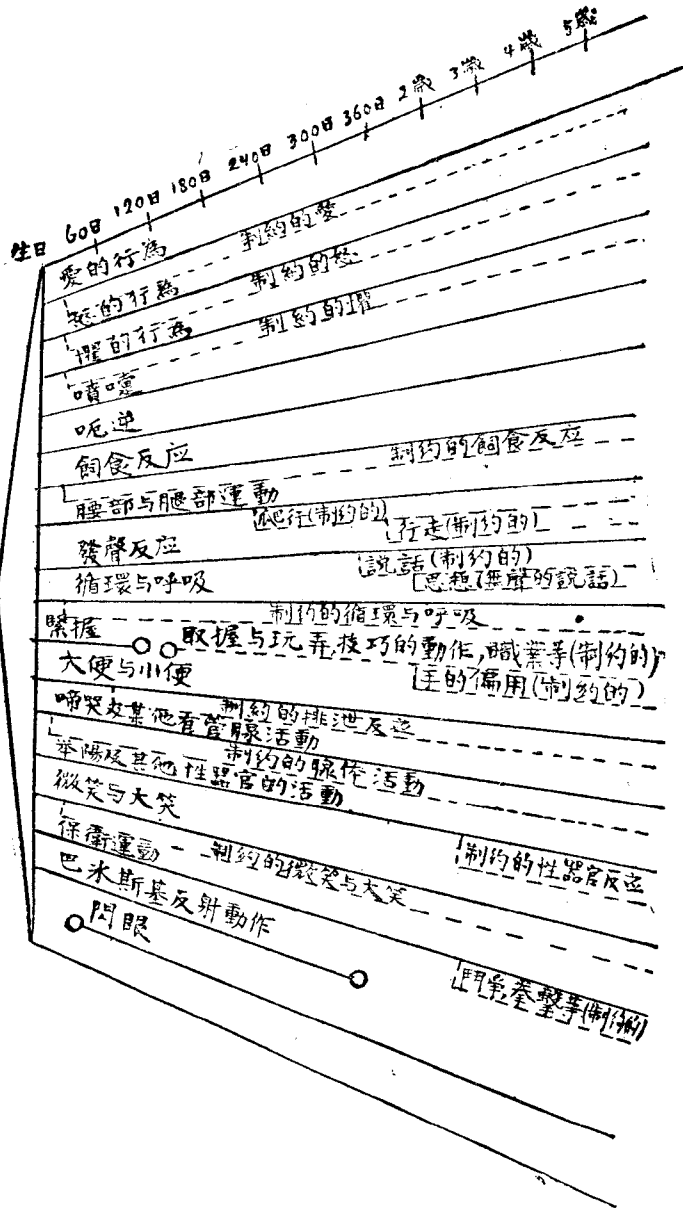 生日 60日 120日 180日 240日 300日 360日 2歲 3歲 4歲 5歲
愛的行為 制約的愛
怒的行為 制約的怒
懼的行為 制約的懼
噴嚏
呃逆
飼食反应 制約的飼食反应
腰部与腿部運動
爬行(制約的) 行走(制約的)
發聲反应 說話(制約的)
思想(無聲的說話)
循環与呼吸
制約的循環与呼吸
緊握 取握与玩弄,技巧的動作,職業等(制約的)
大便与小便 偏用(制約的)
制約的排泄反应
啼哭及其他 腺活動
制約的腺体活動
举陽及其他性器官的活動
微笑与大笑 制約的性器官反应
保衛運動 制約的微笑与大笑
巴氷斯基反射動作
閃眼 鬥爭,拳擊等(制約的)